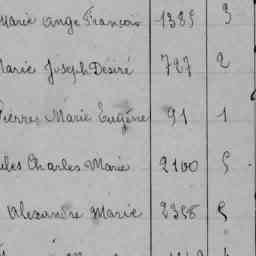 Marie Ange François 1385 3
Marie Joseph Désiré 727 2
Pierre Marie Eugène 91 1
Jules Charles Marie 2100 5
Alexandre Marie 2358 5